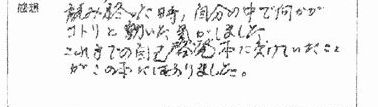 感想
読み終いた時、自分の中で何かが
コトリと動いた気がしました
これまでの自己啓発本に欠けていたこと
がこの本にはありました。